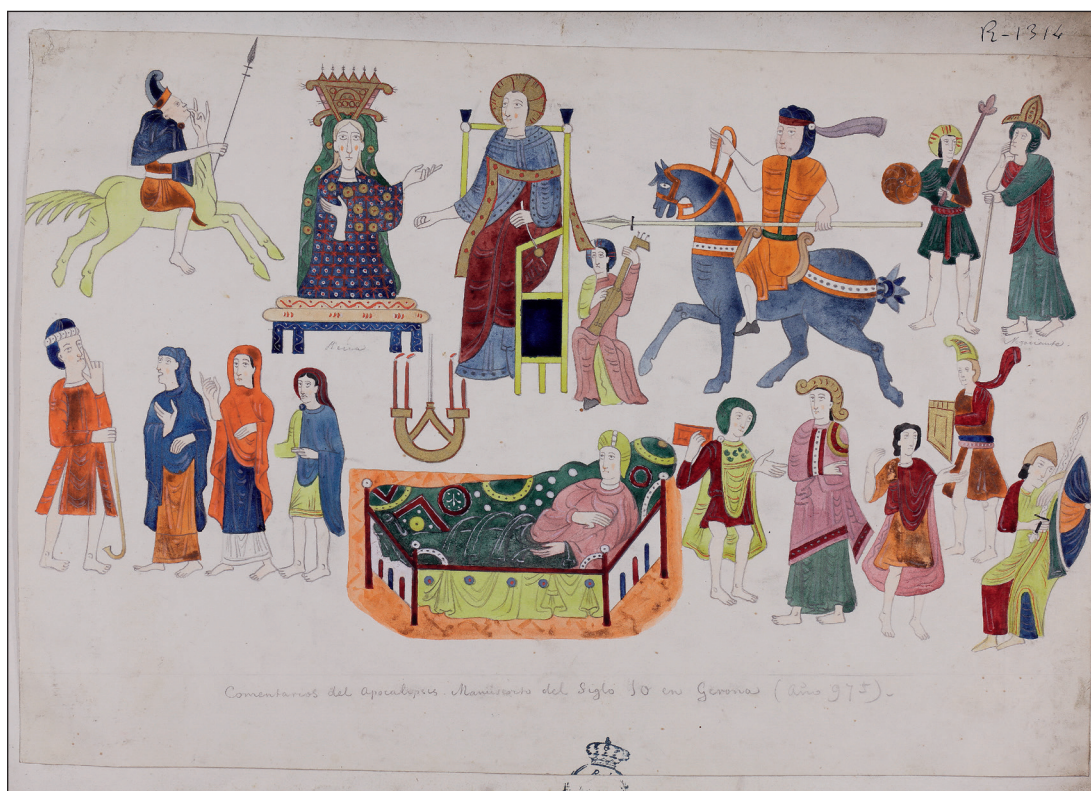 R-1314
Reina
Comentarios del Apocalypsis. Manuscrito del Siglo 10 en Gerona (Año 975).